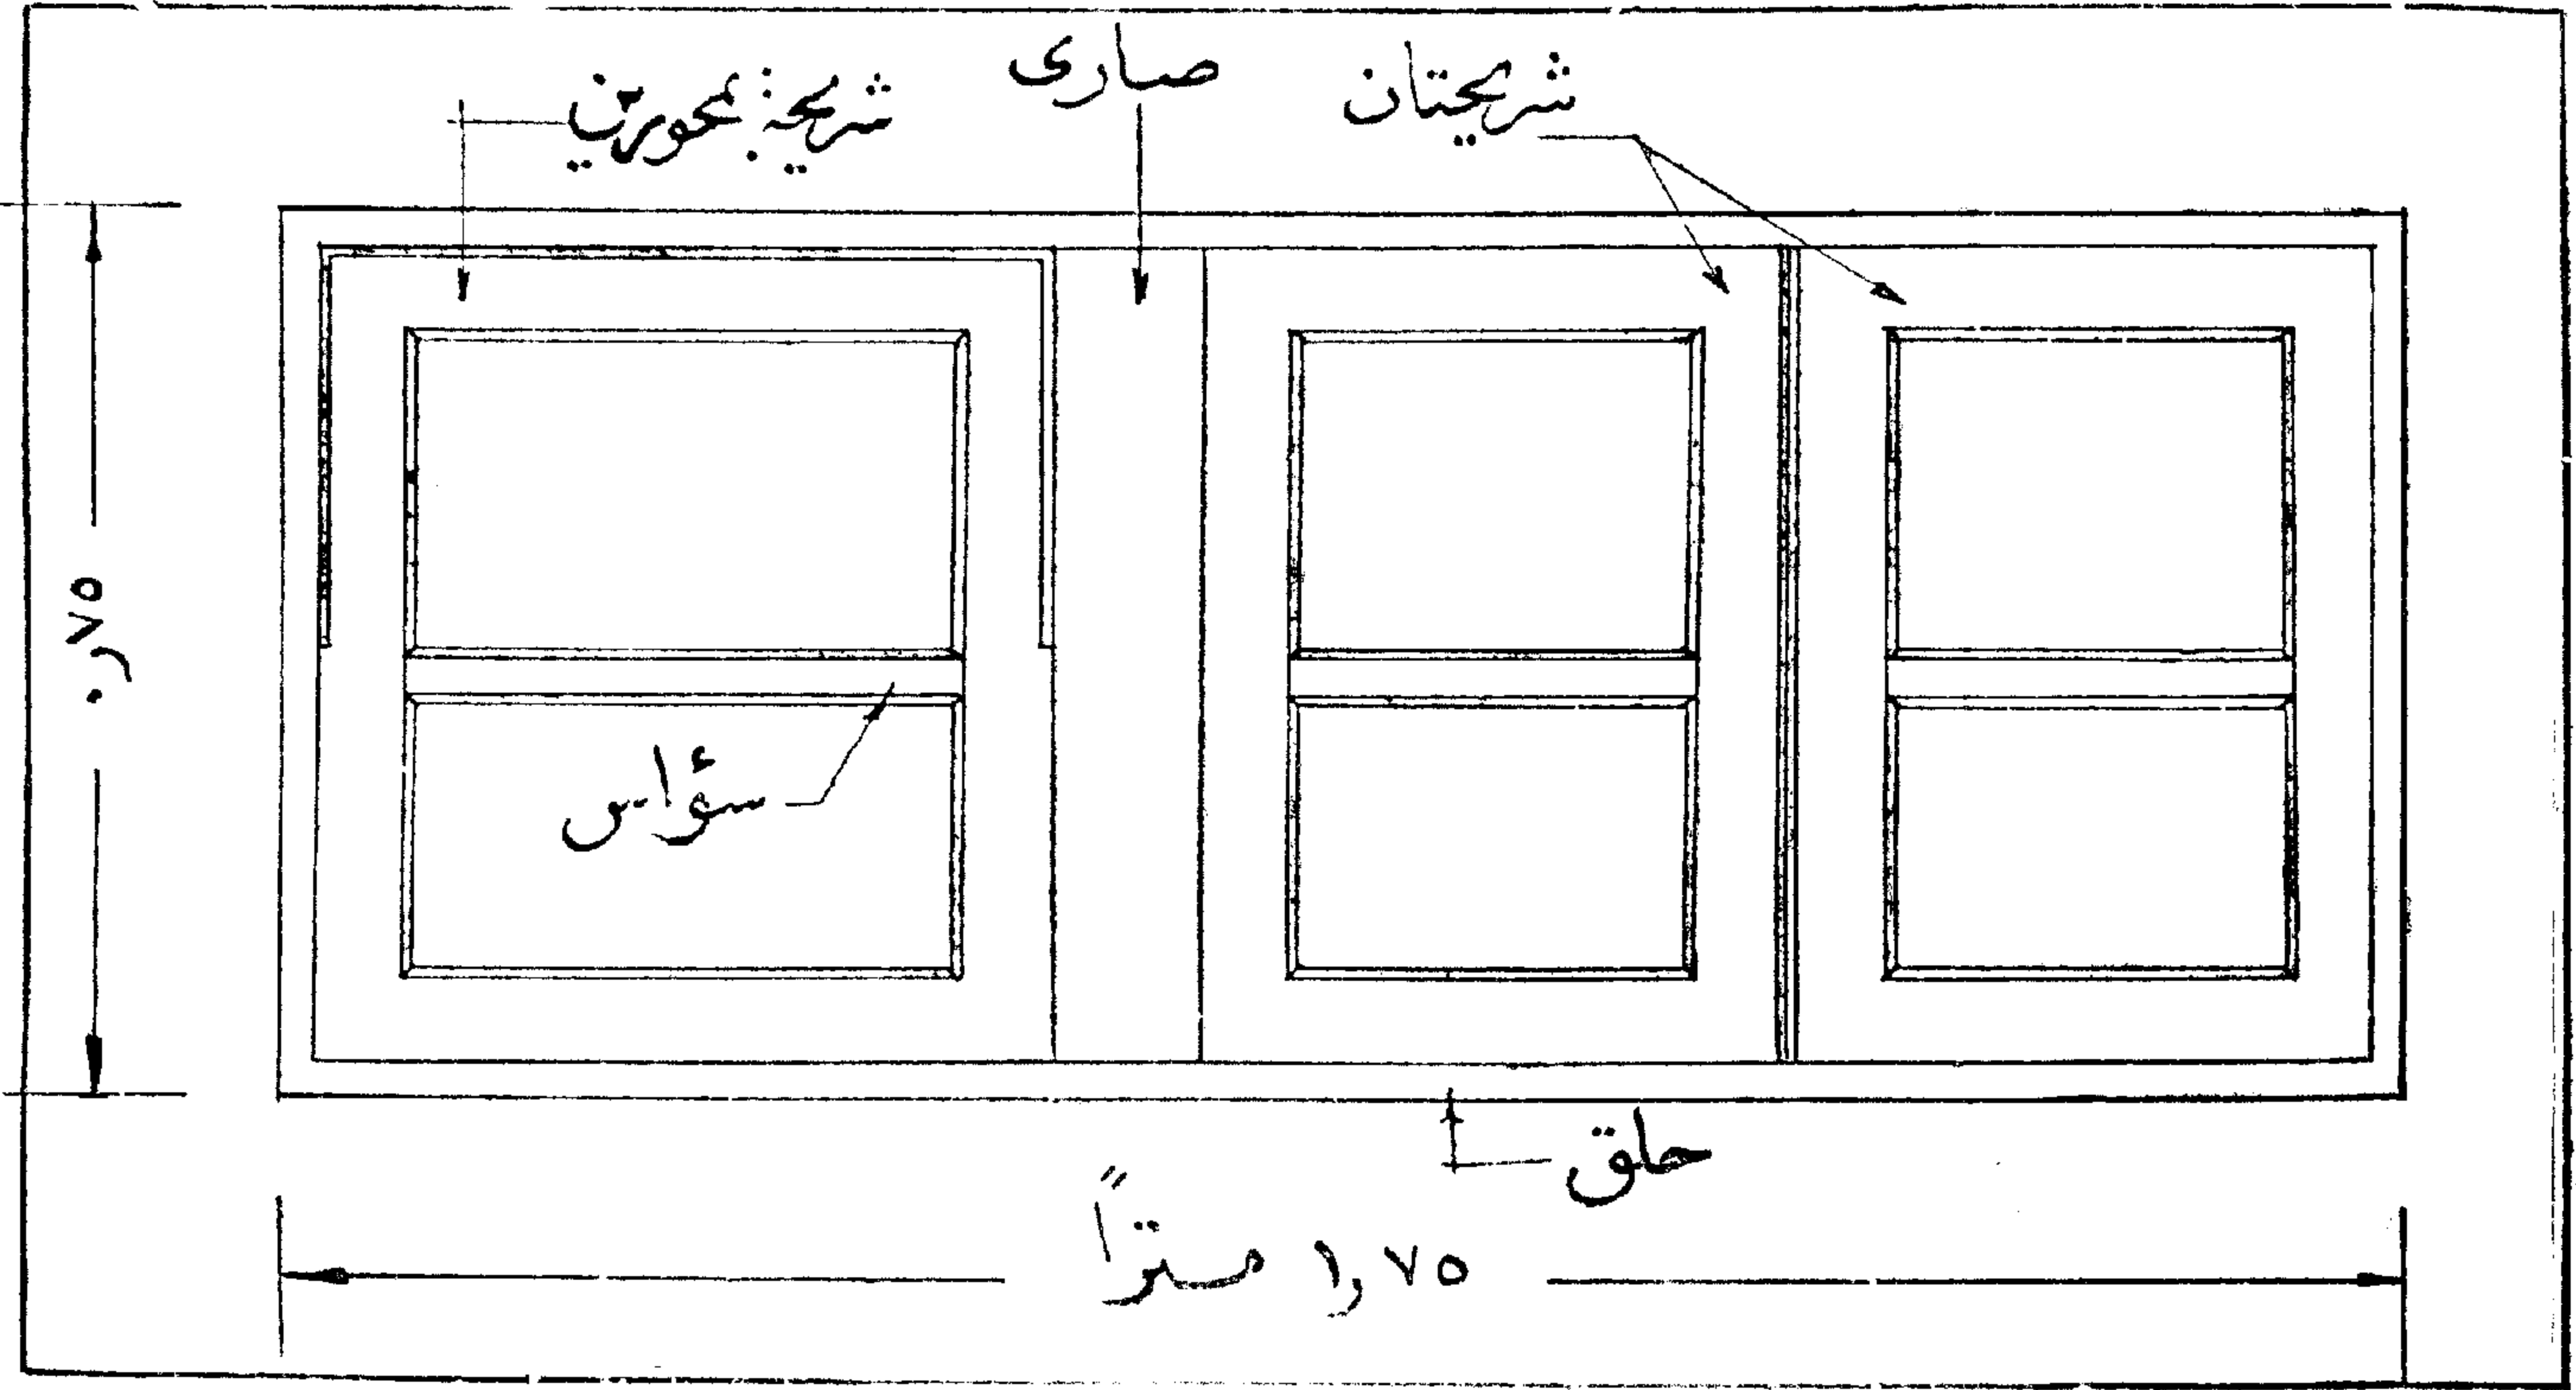 شريحتان
صارى
شريحة بمحورين
٠٫٧٥
سؤاس
حلق
١٫٧٥ مترًا